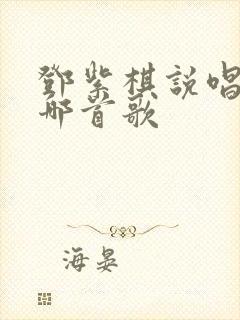 鄧紫棋說唱
哪首歌
海晏